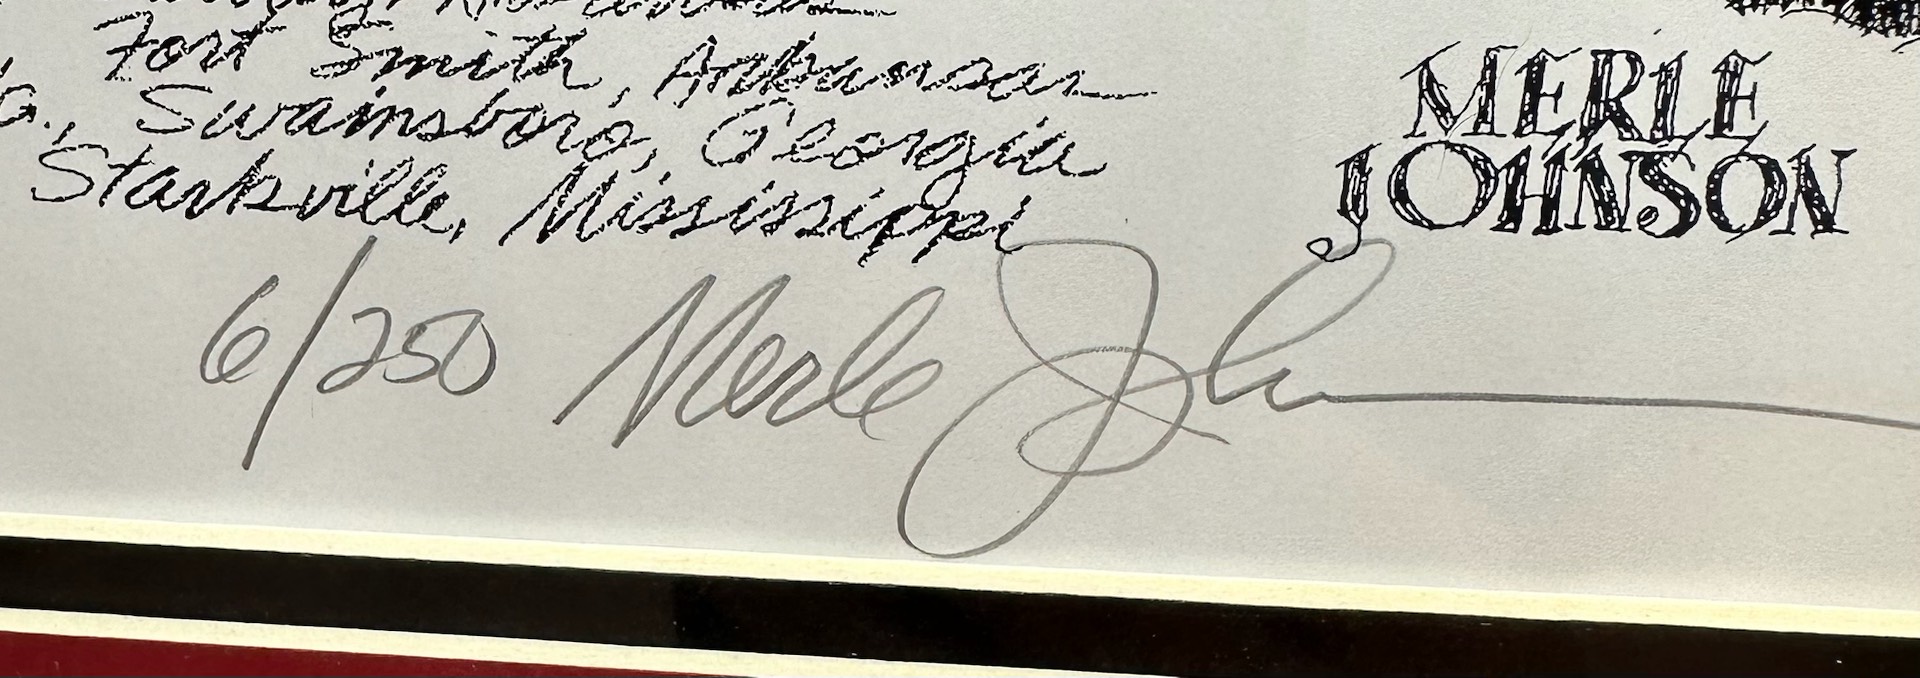 Fort Smith, Arkansas
Swainsboro, Georgia
Starkville, Mississippi
MERLE
JOHNSON
6/250 Merle Johnson